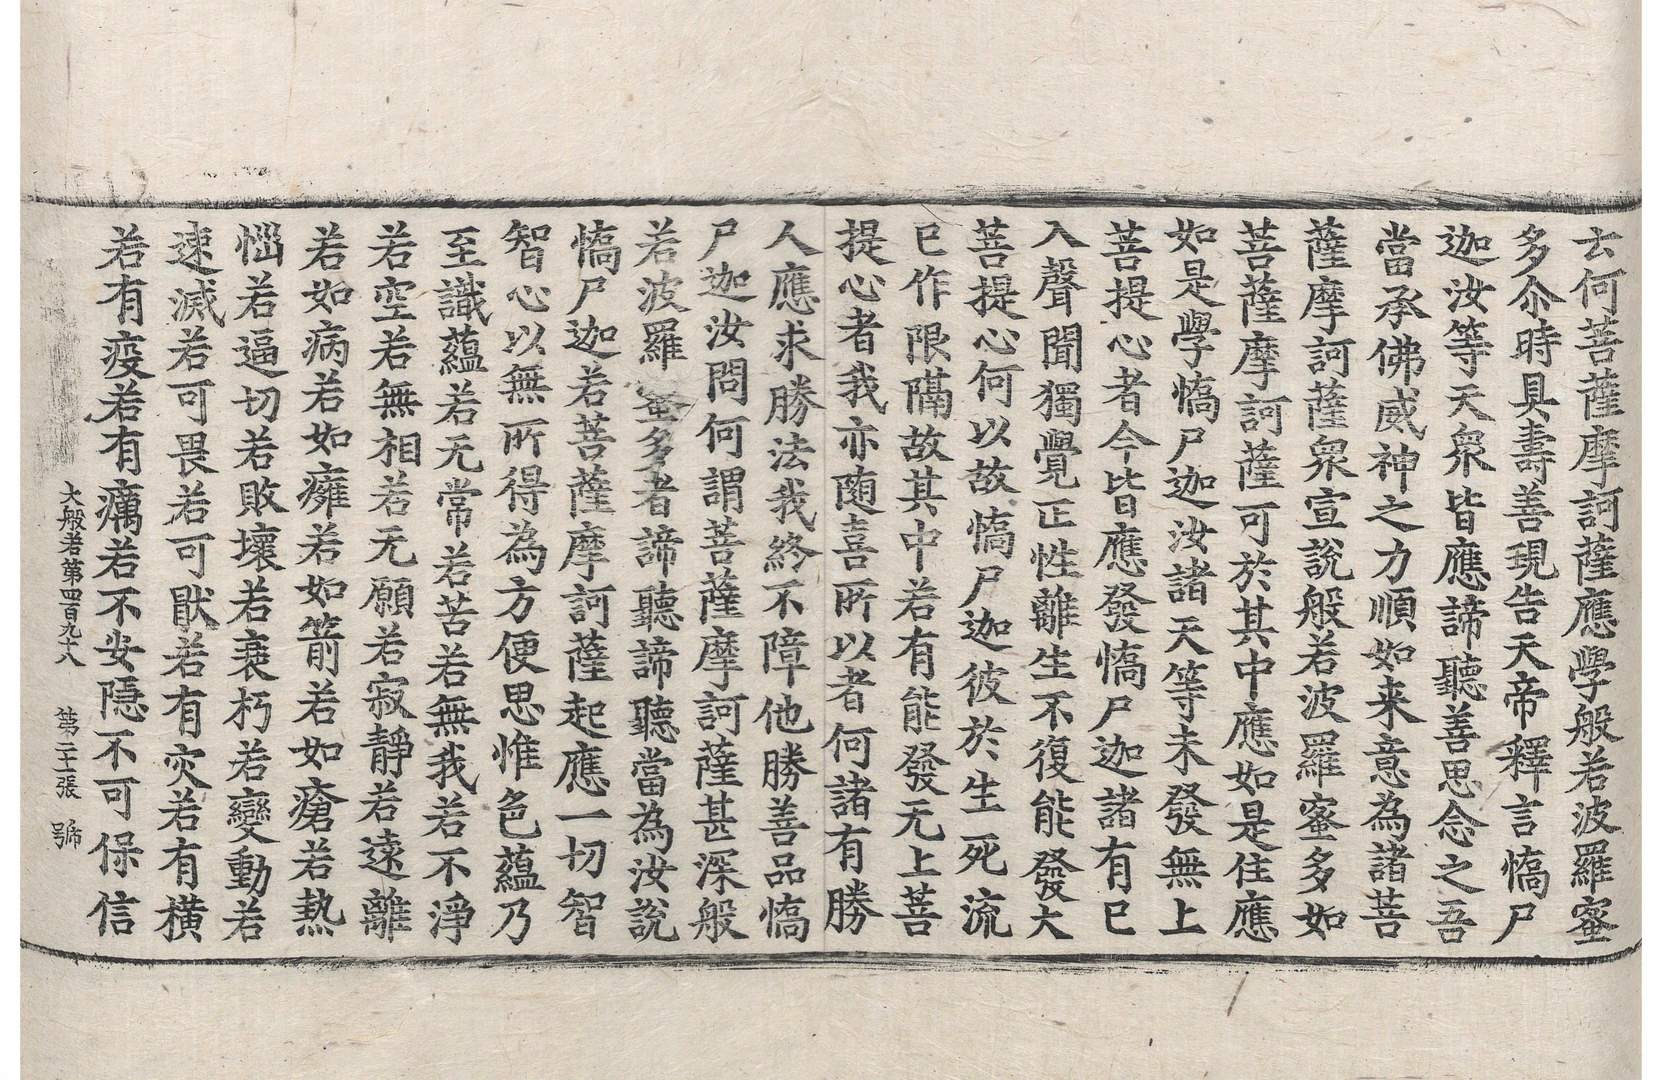 云何菩薩摩訶薩應學般若波羅蜜
多尒時具壽善現告天帝釋言憍尸
迦汝等天衆皆應諦聽善思念之吾
當承佛威神之力順如来意為諸菩
薩摩訶薩衆宣說般若波羅蜜多如
菩薩摩訶薩可於其中應如是住應
如是學憍尸迦汝諸天等未發無上
菩提心者今皆應發憍尸迦諸有已
入聲聞獨覺正性離生不復能發大
菩提心何以故憍尸迦彼於生死流
已作限隔故其中若有能發无上菩
提心者我亦随喜所以者何諸有勝
人應求勝法我終不障他勝善品憍
尸迦汝問何謂菩薩摩訶薩甚深般
若波羅蜜多者諦聽諦聽當為汝說
憍尸迦若菩薩摩訶薩起應一切智
智心以無所得為方便思惟色蘊乃
至識蘊若无常若苦若無我若不淨
若空若無相若无願若寂靜若遠離
若如病若如癰若如箭若如瘡若熱
惱若逼切若敗壞若衰朽若變動若
速滅若可畏若可猒若有灾若有橫
若有疫若有癘若不安隱不可保信
大般若第四百九十八 第二十張 號